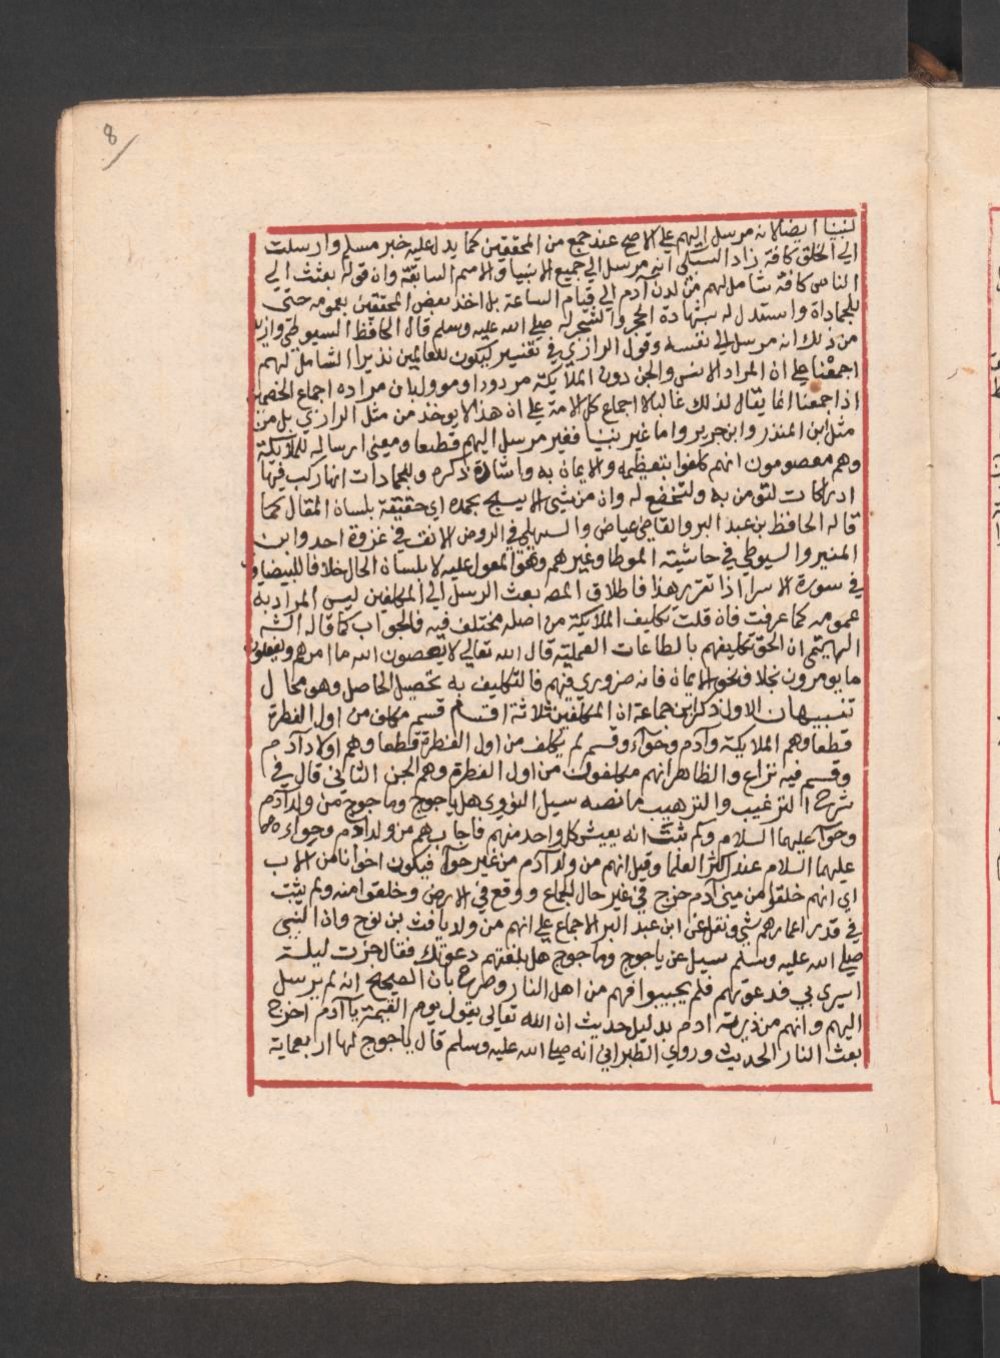 8
لنبينا ايضا لانه مرسل اليهم علي الاصح عند جمع من المحققين كما يدل عليه خبر مسلم وارسلت
الي الخلق كافة زاد السبكي انه مرسل الي جميع الانبيا والامم السابقة وان قوله بعثت الي
الناس كافة شامل لهم من لدن آدم الي قيام الساعة بل اخذ بعض المحققين بعمومه حتي
للجمادات واستدل له بشهادة الحجر والشجر له صلي الله عليه وسلم قال الحافظ السيوطي وازيد
من ذلك انه مرسل الي نفسه وقول الرازي في تفسير ليكون للعالمين نذيرا الشامل لهم
اجمعنا علي ان المراد الانس والجن دون الملايكة مردود او موول بان مراده اجماع الخصمين
اذ اجمعنا انما يقال لذلك غالبا لا اجماع كل الامة علي ان هذا لا يوخذ من مثل الرازي بل من
مثل ابن المنذر وابن جرير واما غير نبينا فغير مرسل اليهم قطعا ومعني ارساله للملايكة
وهم معصومون انهم كلفوا بتعظيمه والايمان به واشادة ذكره وللجمادات انها ركب فيها
ادراكات لتؤمن به ولتخضع له وان من شي الا يسبح بحمده اي حقيقة بلسان المقال كما
قاله الحافظ بن عبد البر والقاضي عياض والسهيلي في الروض الانف في غزوة احد وابن
المنير والسيوطي في حاشيته الموطا وغيرهم وهو المعول عليه لا بلسان الحال خلافا للبيضاوي
في سورة الاسرا اذا تقرر هذا فاطلاق المصه بعث الرسل الي المكلفين ليس المراد به
عمومه كما عرفت فان قلت تكليف الملايكة من اصله مختلف فيه فالجواب كما قاله الشه
الهيتمي ان الحق تكليفهم بالطاعات العملية قال الله تعالي لا يعصون الله ما امرهم ويفعلون
ما يومرون بخلاف نحو الايمان فانه ضروري فيهم فالتكليف به تحصيل الحاصل وهو محال
تنبيهان الاول ذكر ابن جماعة ان المكلفين ثلاثة اقسام قسم مكلف من اول الفطرة
قطعا وهم الملايكة وآدم وحوآء وقسم لم يكلف من اول الفطرة قطعا وهم اولاد آدم
وقسم فيه نزاع والظاهر انهم مكلفون من اول الفطرة وهم الجن الثاني قال في
شرح الترغيب والترهيب ما نصه سيل النووي هل ياجوج وماجوج من ولد آدم
وحوا عليهما السلام وكم ثبت انه يعيش كل واحد منهم فاجاب هم من ولد آدم وحواء
عليهما السلام عند اكثر العلما وقيل انهم من ولد آدم من غير حوآ فيكون اخواننا من الاب
اي انهم خلقوا من مني آدم خرج في غير حال الجماع ووقع في الارض وخلقوا منه ولم يثبت
في قدر اعمارهم شي ونقل عن ابن عبد البر الاجماع علي انهم من ولد يافث بن نوح وان النبي
صلي الله عليه وسلم سيل عن ياجوج وماجوج هل بلغتهم دعوتك فقال جزت ليلة
اسري بي فدعوتهم فلم يجيبوا فهم من اهل النار وصرح بان الصحيح انه لم يرسل
اليهم وانهم من ذرية ادم بدليل حديث ان الله تعالي يقول يوم القيمة يا آدم اخرج
بعث النار الحديث وروي الطبراني انه صلي الله عليه وسلم قال ياجوج لها اربعماية